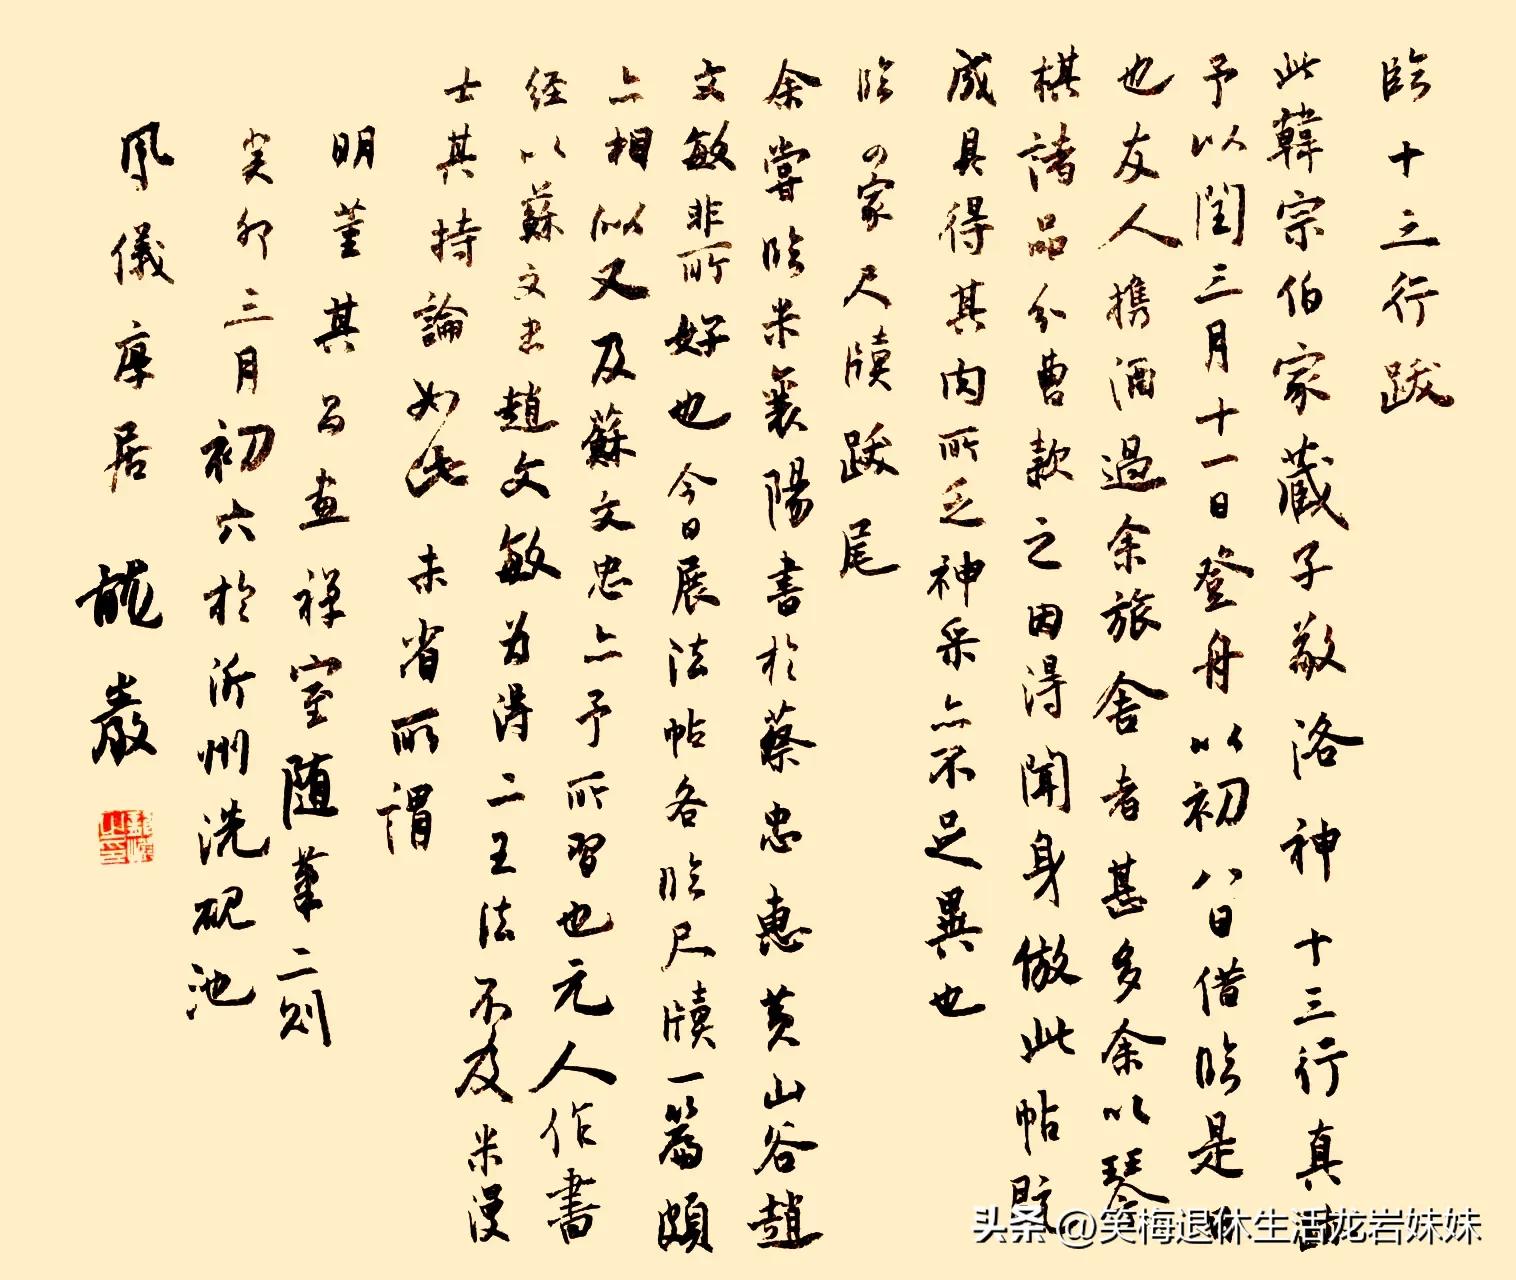 臨十三行跋
此韓宗伯家藏子敬洛神十三行真
予以閏三月十一日登舟以初八日借臨是日
也友人携酒過余旅舍者甚多余以琴
棋諸品分曹款之因得聞身倣此帖既
成具得其肉所乏神采亦不足異也
臨四家尺牘跋尾
余嘗臨米襄陽書於蔡忠惠黃山谷趙
文敏非所好也今日展法帖各臨尺牘一篇頗
亦相似又及蘇文忠亦予所習也元人作書
経以蘇文忠趙文敏為得二王法不及米漫
士其持論如此未省所謂
明董其昌畫禅室随筆二則
癸卯三月初六於沂州洗硯池
風儀厚居 龍巖
头条 @笑梅退休生活龙岩妹妹